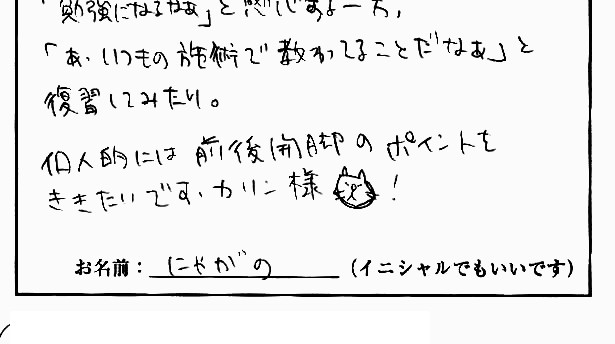 「勉強になるなぁ」と感じある一方、
「あ、いつもの施術で教わってることだなぁ」と
復習してみたり。
個人的には前後開脚のポイントを
ききたいです、カリン様!
お名前:にゃがの(イニシャルでもいいです)